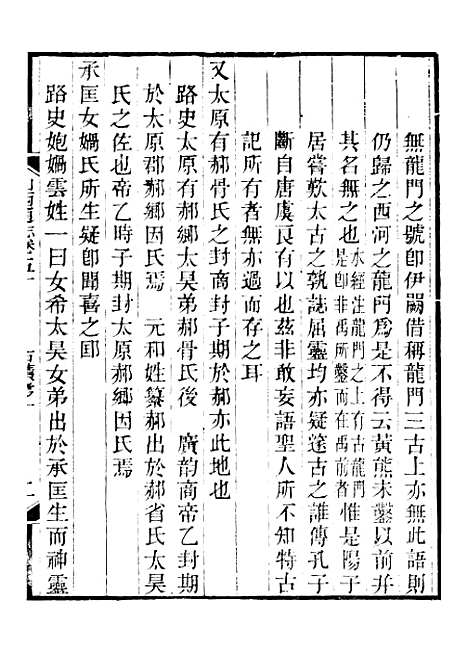 無龍門之號卽伊闕借稱龍門三古上亦無此語則
仍歸之西河之龍門爲是不得云黃熊未鑿以前幷
其名無之也水經注龍門之上有古龍門是卽非禹所鑿而在禹前者惟是陽子
居嘗歎太古之孰誌屈靈均亦疑邃古之誰傳孔子
斷自唐虞良有以也茲非敢妄語聖人所不知特古
記所有者無亦過而存之耳
又太原有郝骨氏之封商封子期於郝亦此地也
路史太原有郝鄉太昊弟郝骨氏後　廣韵商帝乙封期
於太原郡郝鄉因氏焉　元和姓纂郝出於郝省氏太昊
氏之佐也帝乙時子期封太原郝鄉因氏焉
承匡女媧氏所生疑卽聞喜之匡
路史炮媧雲姓一曰女希太昊女弟出於承匡生而神靈